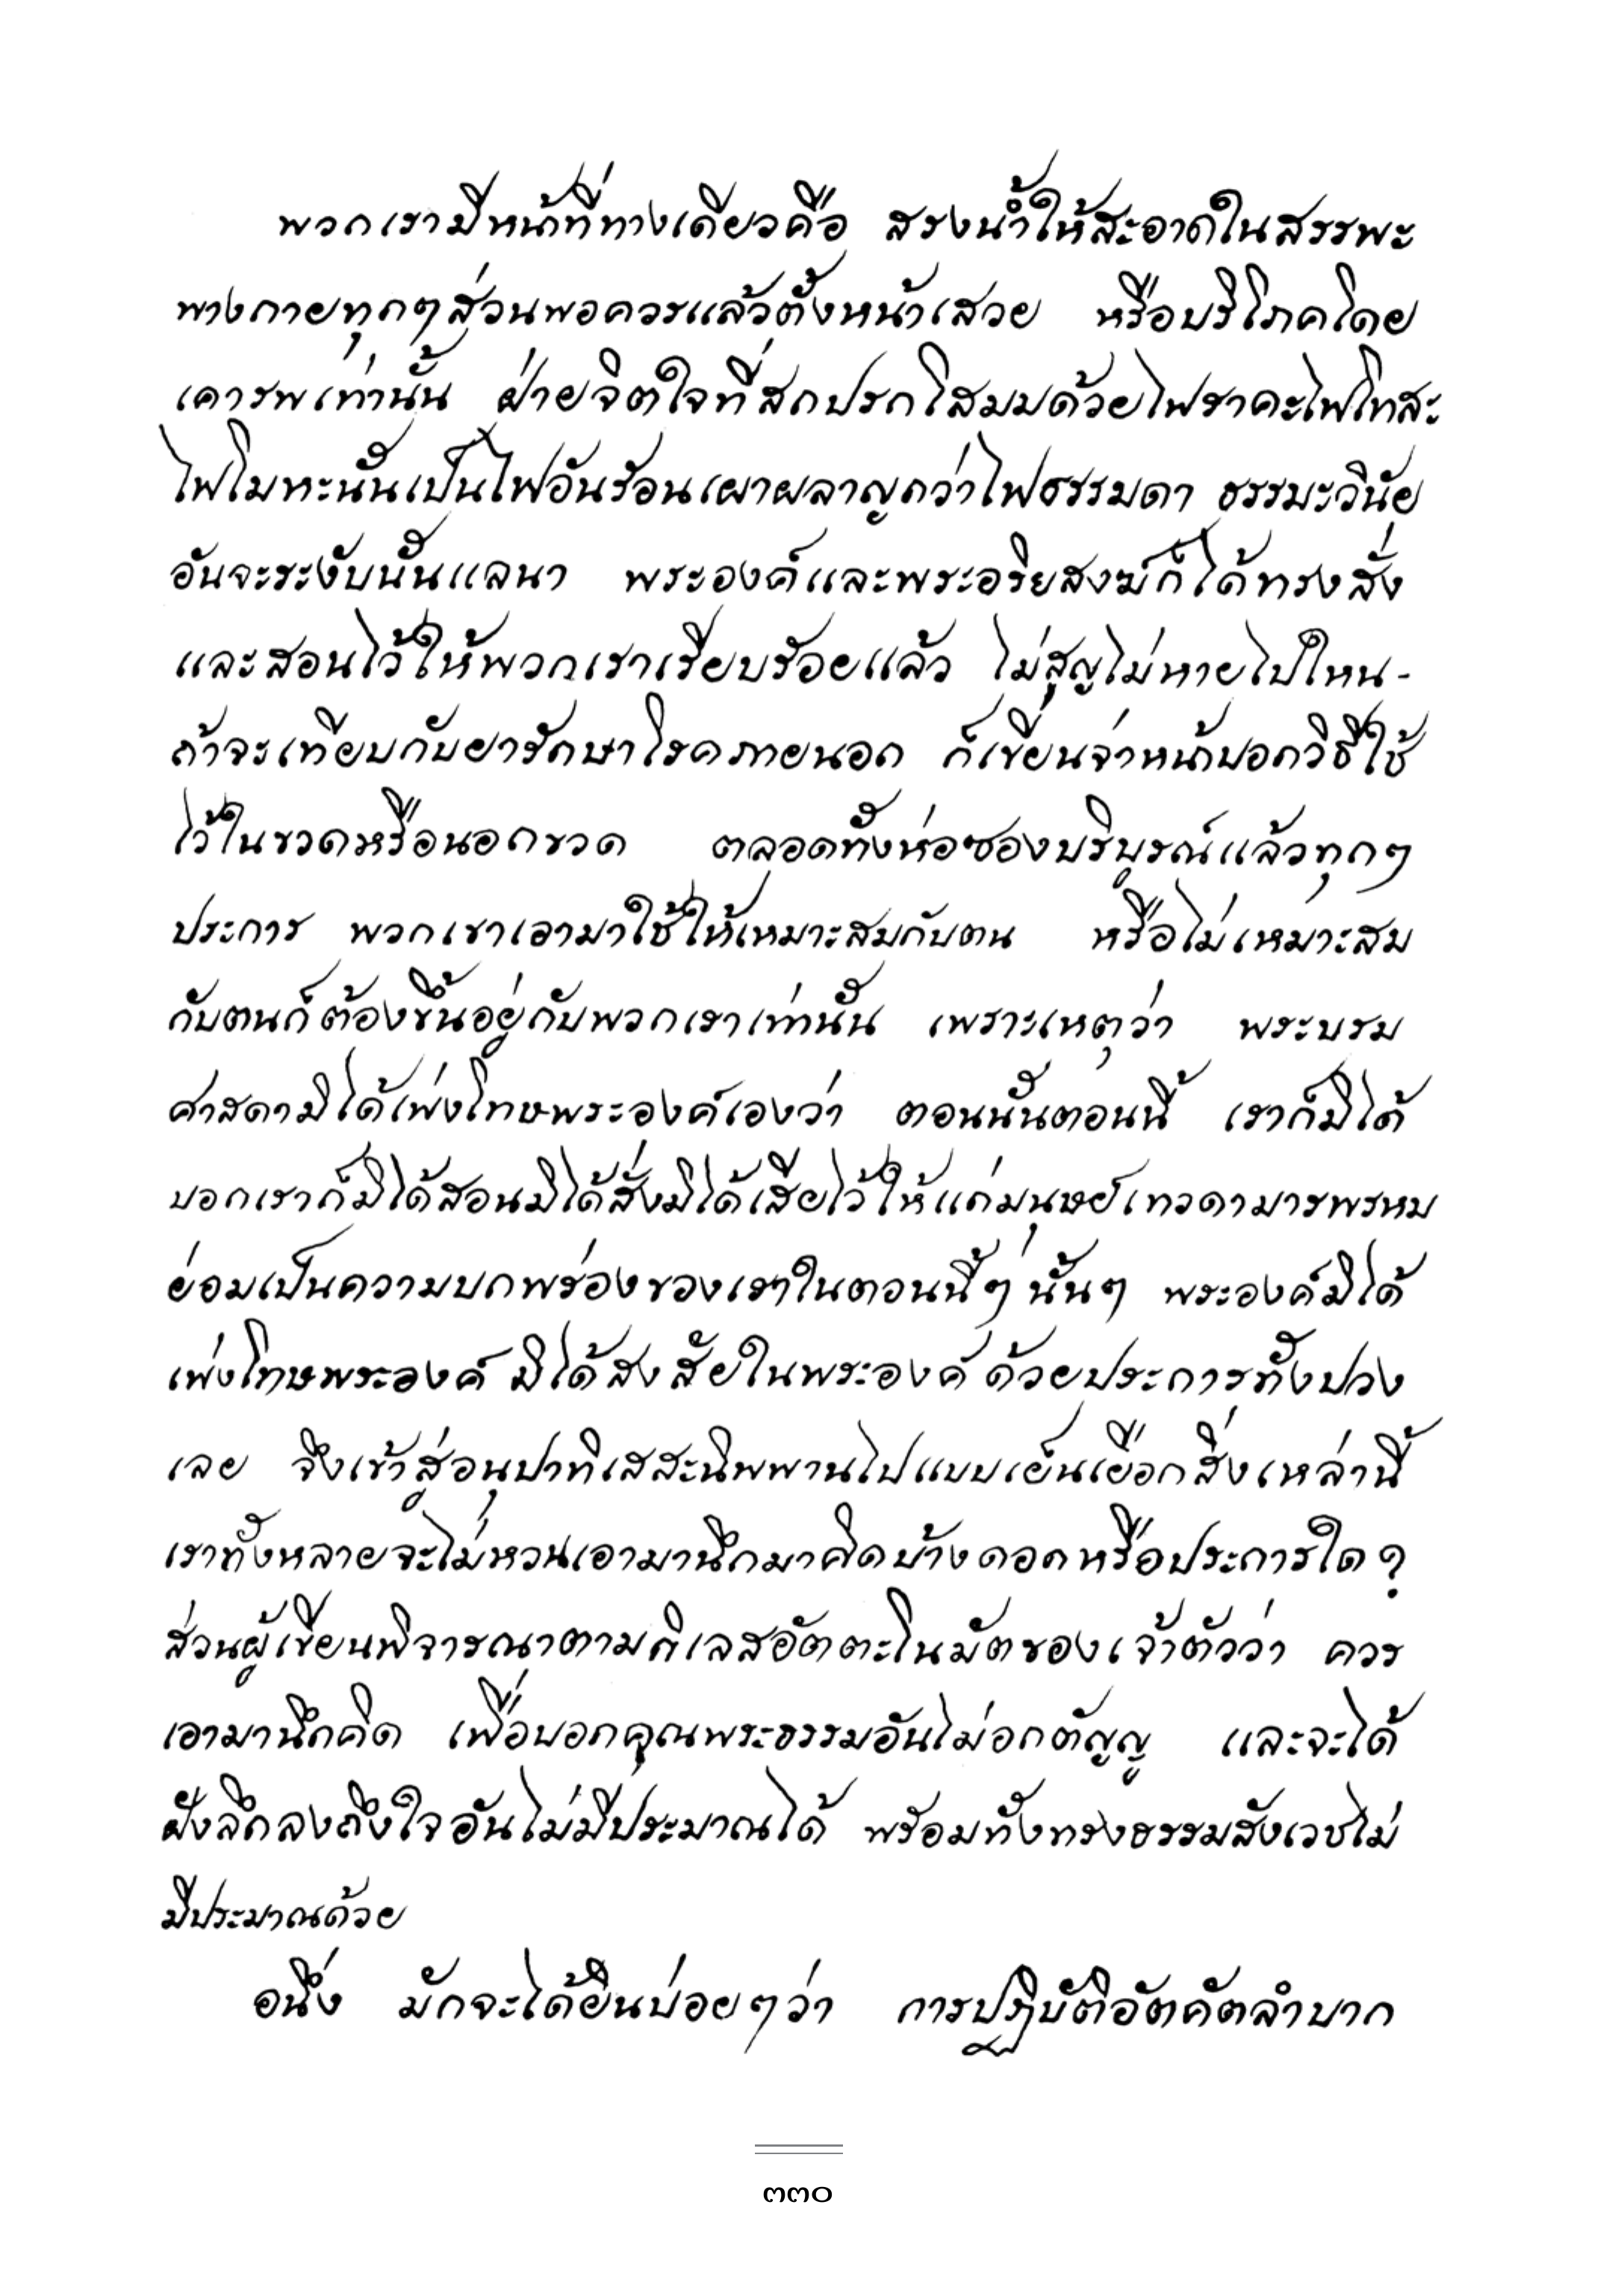 พวกเรามีหน้าที่ทางเดียวคือ สรงน้ำให้สะอาดในสรรพะ
พางกายทุกๆส่วนพอควรแล้วตั้งหน้าเสวย หรือบริโภคโดย
เคารพเท่านั้น ฝ่ายจิตใจที่สกปรกโสมมด้วยไฟราคะไฟโทสะ
ไฟโมหะนั้นเป็นไฟอันร้อนเผาผลาญกว่าไฟธรรมดา ธรรมะวินัย
อันจะระงับนั้นแลนา พระองค์และพระอริยสงฆ์ก็ได้ทรงสั่ง
และสอนไว้ให้พวกเราเรียบร้อยแล้ว ไม่สูญไม่หายไปไหน-
ถ้าจะเทียบกับยารักษาโรคภายนอก ก็เขียนจ่าหน้าบอกวิธีใช้
ไว้ในขวดหรือนอกขวด ตลอดทั้งห่อซองบริบูรณ์แล้วทุกๆ
ประการ พวกเราเอามาใช้ให้เหมาะสมกับตน หรือไม่เหมาะสม
กับตนก็ต้องขึ้นอยู่กับพวกเราเท่านั้น เพราะเหตุว่า พระบรม
ศาสดามิได้เพ่งโทษพระองค์เองว่า ตอนนั้นตอนนี้ เราก็มิได้
บอกเราก็มิได้สอนมิได้สั่งมิได้เสียไว้ให้แก่มนุษย์เทวดามารพรหม
ย่อมเป็นความบกพร่องของเราในตอนนี้ๆ นั้นๆ พระองค์มิได้
เพ่งโทษพระองค์ มิได้สงสัยในพระองค์ ด้วยประการทั้งปวง
เลย จึงเข้าสู่อนุปาทิเสสะนิพพานไปแบบเย็นเยือกสิ่งเหล่านี้
เราทั้งหลายจะไม่หวนเอามานึกมาคิดบ้างดอกหรือประการใด ?
ส่วนผู้เขียนพิจารณาตามกิเลสอัตตะโนมัตของเจ้าตัวว่า ควร
เอามานึกคิด เพื่อบอกคุณพระธรรมอันไม่อกตัญญู และจะได้
ฝังลึกลงถึงใจอันไม่มีประมาณได้ พร้อมทั้งทรงธรรมสังเวชไม่
มีประมาณด้วย
อนึ่ง มักจะได้ยินบ่อยๆว่า การปฏิบัติอัตคัตลำบาก
๓๓๐